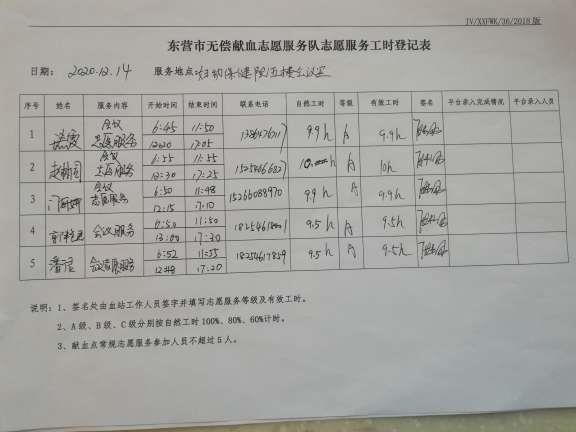 JV/XXFWK/36/2018版
东营市无偿献血志愿服务队志愿服务工时登记表
日期: 2020.12.14 服务地点:妇幼保健院五楼会议室
序号 姓名 服务内容 开始时间 结束时间 联系电话 自然工时 等级 有效工时 签名 平台录入完成情况 平台录入人员
1 会议志愿服务 6:45 11:50 9.9h A 9.9h
12:20 17:05
2 会议志愿服务 6:55 11:55 A 10h
12:30 17:25
3 会议志愿服务 6:50 11:48 15266088970 9.9h A 9.9h
12:15 17:10
4 会议服务 6:50 11:50 9.5h A 9.5h
13:00 17:30
5 潘 会议志愿服务 6:52 11:55 18254617859 9.5h A 9.5h
17:20
说明:1、签名处由血站工作人员签字并填写志愿服务等级及有效工时。
2、A级、B级、C级分别按自然工时100%、80%、60%计时。
3、献血点常规志愿服务参加人员不超过5人。